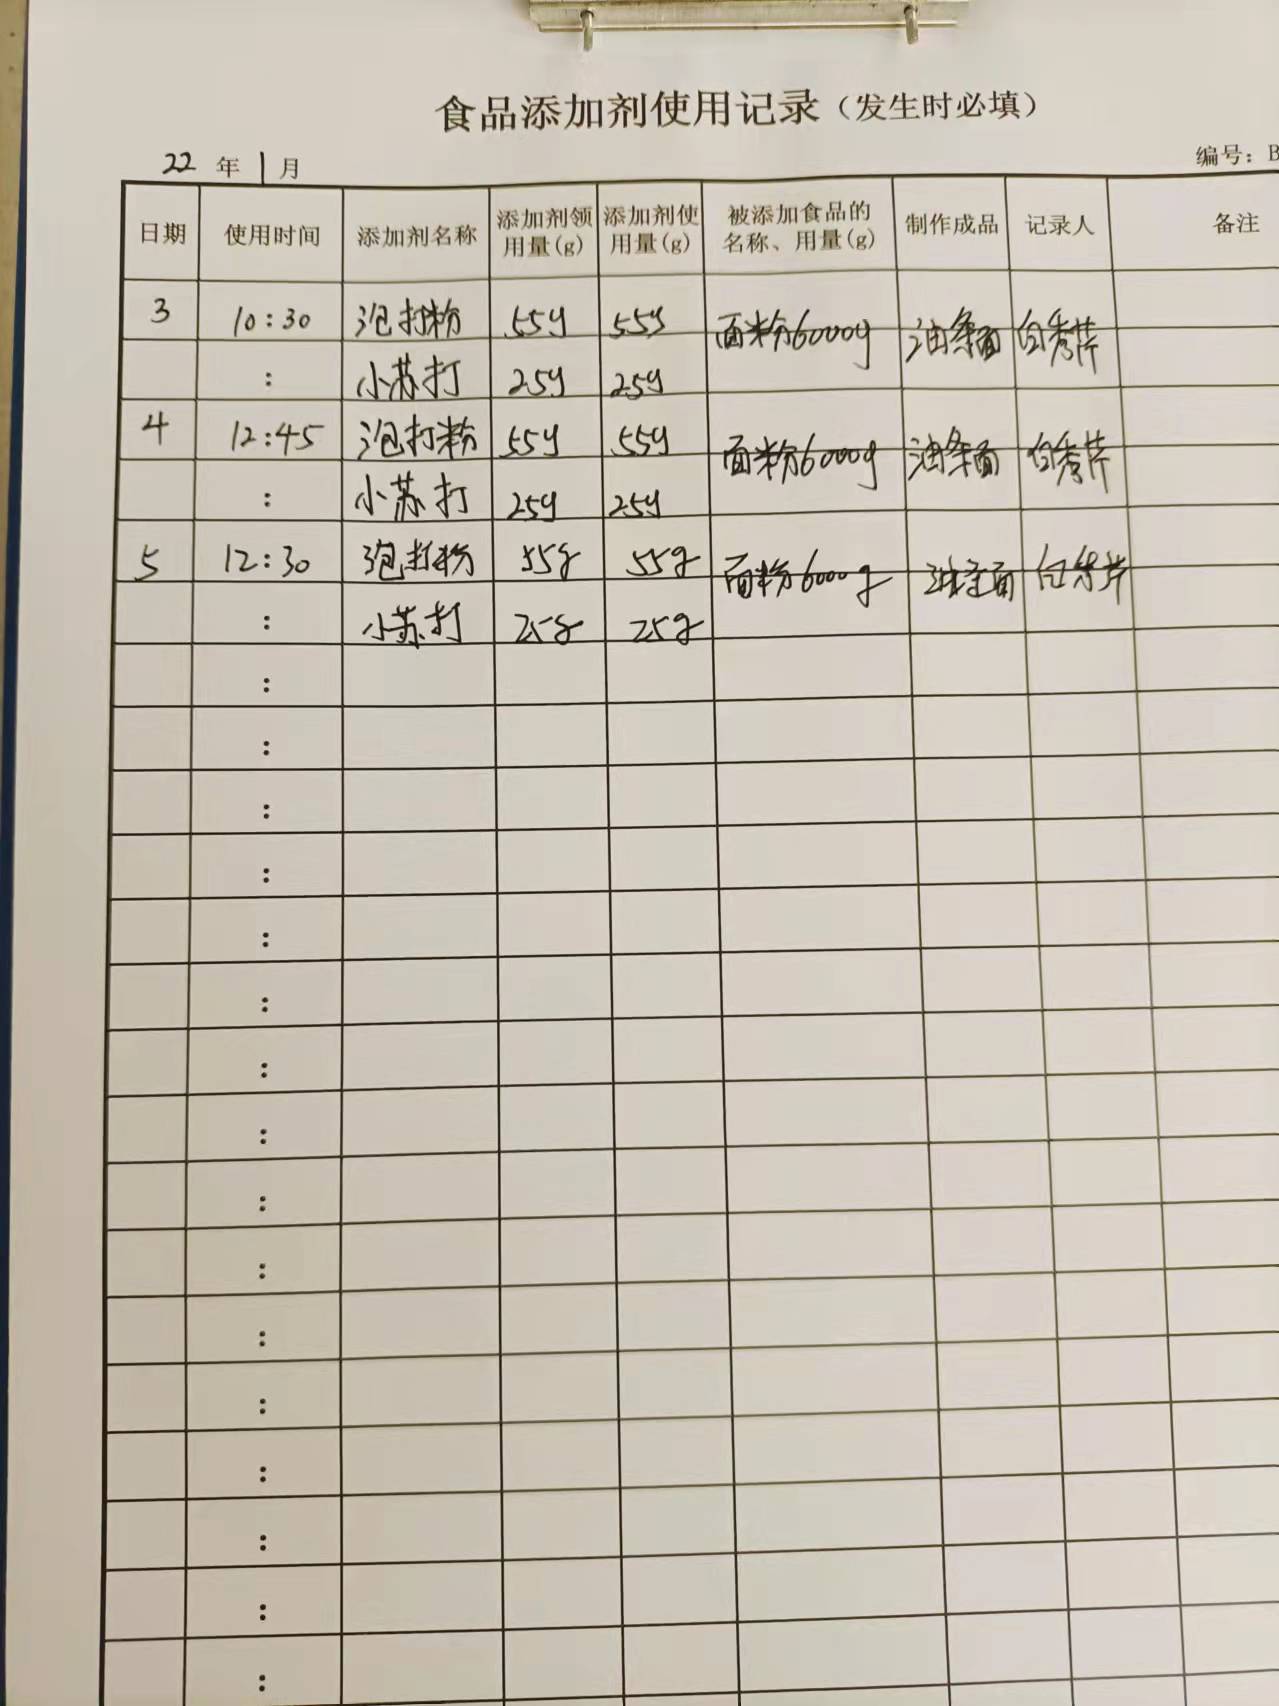 食品添加剂使用记录（发生时必填）
22 年 1 月
编号：B
日期 使用时间 添加剂名称 添加剂领用量(g) 添加剂使用量(g) 被添加食品的名称、用量(g) 制作成品 记录人 备注
3 10:30 泡打粉 55g 55g 面粉6000g 油条面 白秀芹
: 小苏打 25g 25g
4 12:45 泡打粉 55g 55g 面粉6000g 油条面 白秀芹
: 小苏打 25g 25g
5 12:30 泡打粉 55g 55g 面粉6000g 油条面 白秀芹
: 小苏打 25g 25g
:
:
:
:
:
:
:
:
:
:
:
:
:
:
:
: